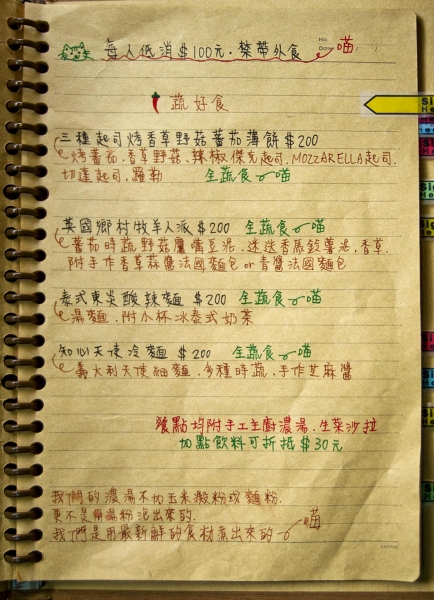 每人低消$100元．禁帶外食 喵
No.
Date
蔬好食
三種起司烤香草野菇蕃茄薄餅 $200
烤蕃茄．香草野菇．辣椒傑克起司．MOZZARELLA起司．
切達起司．羅勒 全蔬食 喵
英國鄉村牧羊人派 $200 全蔬食 喵
蕃茄時蔬野菇鷹嘴豆泥．迷迭香馬鈴薯泥．香草．
附手作香草蒜醬法國麵包 or 青醬法國麵包
泰式東炎酸辣麵 $200 全蔬食 喵
湯麵．附小杯冰泰式奶茶
知心天使冷麵 $200 全蔬食 喵
義大利天使細麵．多種時蔬．手作芝麻醬
餐點均附手工主廚濃湯．生菜沙拉
加點飲料可折抵$30元
我們的濃湯不加玉米澱粉或麵粉．
更不是用湯粉泥出來的．
我們是用最新鮮的食材煮出來的 喵